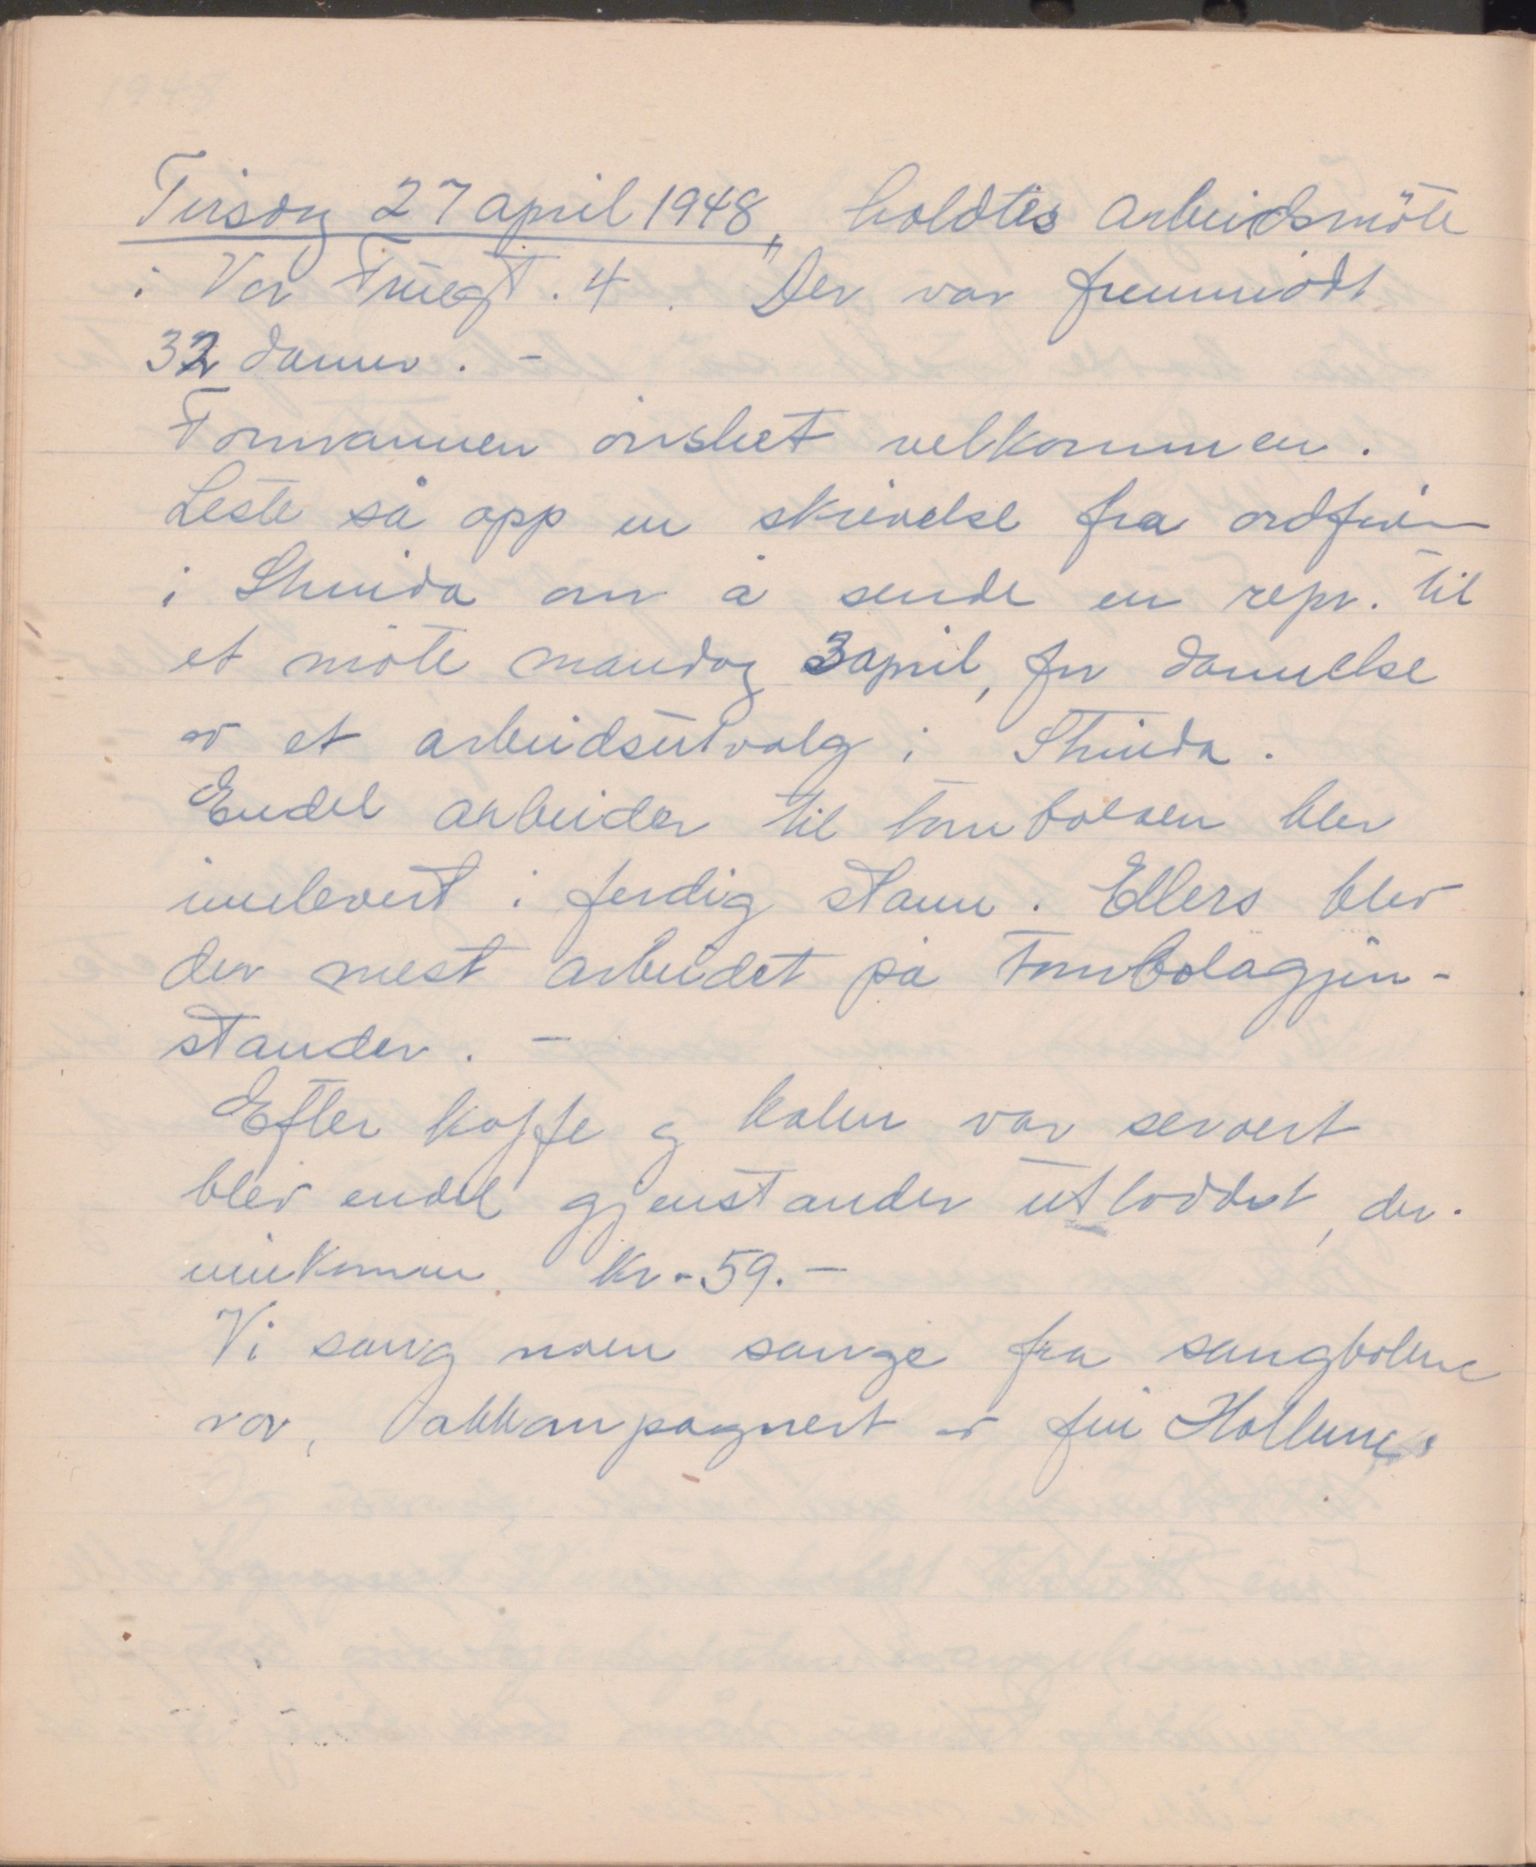 Tirsdag 27 april 1948, holdtes arbeidsmöte
i Vor Fruegt. 4. Der var fremmödt
32 damer. -
Formannen önsket velkommen.
Leste så opp en skrivelse fra ordförer
i Strinda om å sende en repr. til
et möte mandag 3 april, for dannelse
av et arbeidsutvalg i Strinda.
Endel arbeider til tombolaen blev
innlevert i ferdig stann. Ellers blev
der mest arbeidet på Tombolagjen-
stander. -
Efter kaffe og kaker var servert
blev endel gjenstander utloddet, der.
innkomm kr. 59.-
Vi sang noen sange fra sangbökene
vor, akkompagnert av fru